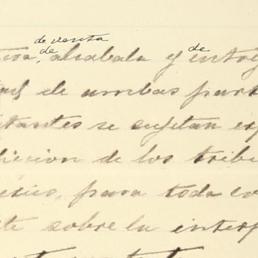 de venta
de de
alcabala y
de ambas part
tantes se sujetan ex
dicion de los tribu
para toda co
te sobre la interp